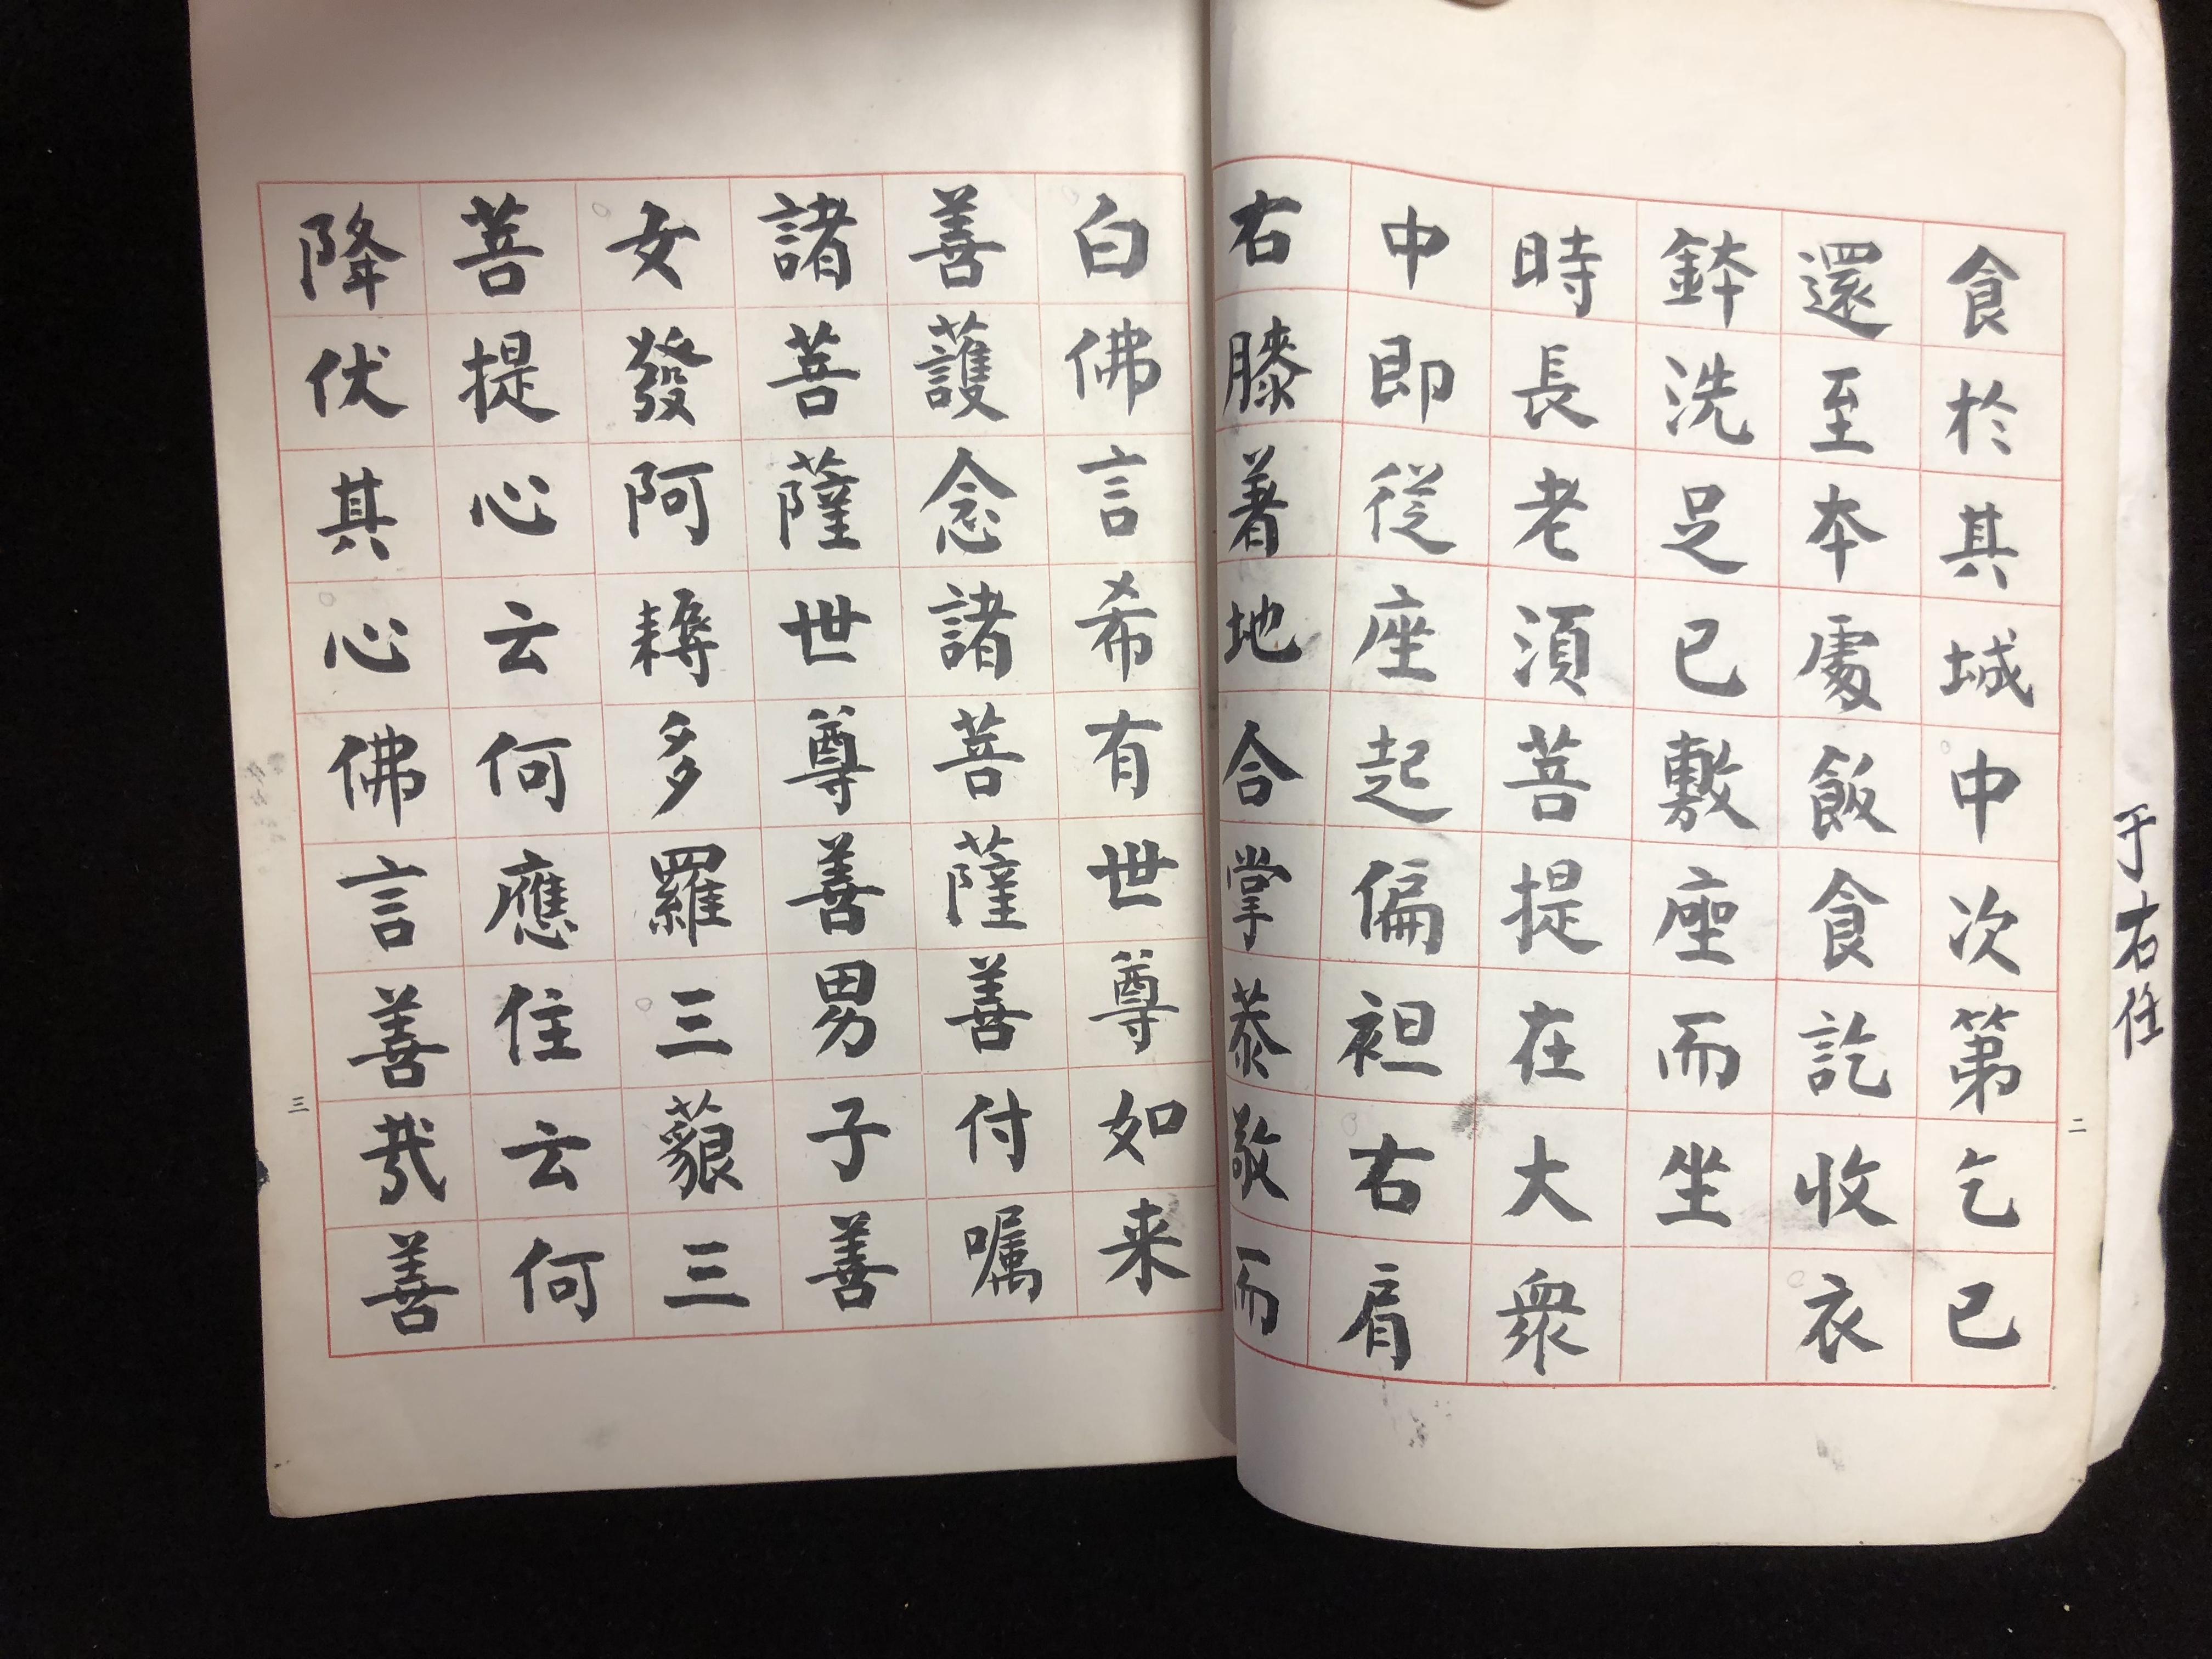 食於其城中次第乞已
還至本處飯食訖收衣
鉢洗足已敷座而坐
時長老須菩提在大衆
中即從座起偏袒右肩
右膝着地合掌恭敬而
二
于右任
白佛言希有世尊如来
善護念諸菩薩善付嘱
諸菩薩世尊善男子善
女發阿耨多羅三藐三
菩提心云何應住云何
降伏其心佛言善哉善
三